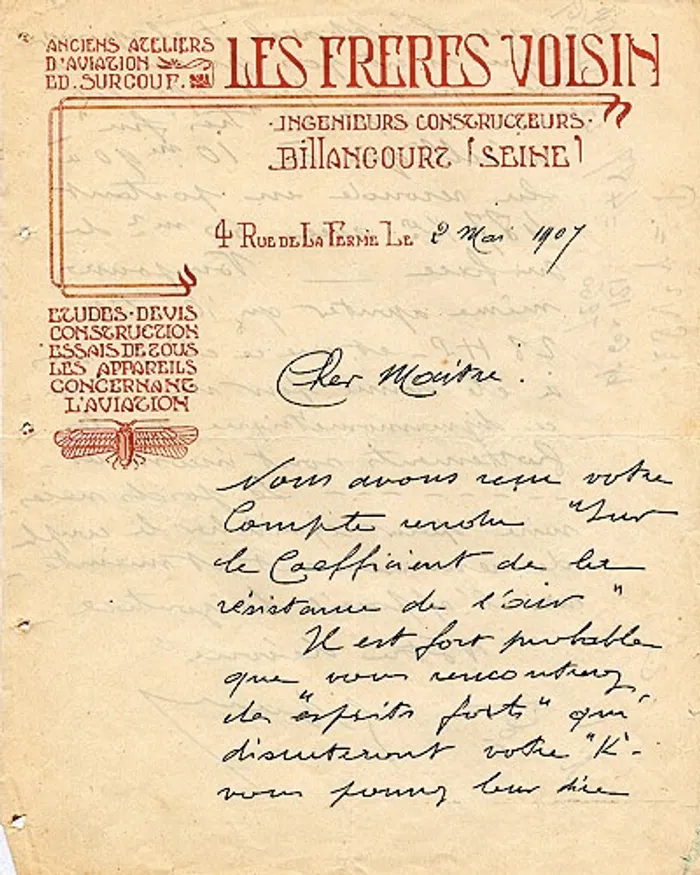 ANCIENS ATELIERS
D'AVIATION
ED. SURCOUF.
LES FRERES VOISIN
·INGENIEURS CONSTRUCTEURS·
BILLANCOURT (SEINE)
4 RUE DE LA FERME LE 2 Mai 1907
ETUDES·DEVIS
CONSTRUCTION
ESSAIS DE TOUS
LES APPAREILS
CONCERNANT
L'AVIATION
Cher Maitre.
Nous avons reçu votre
Compte rendu "Sur
le Coefficient de la
résistance de l'air"
Il est fort probable
que vous rencontrerez
des "esprits forts" qui
discuteront votre "K"-
vous pourrez leur dire